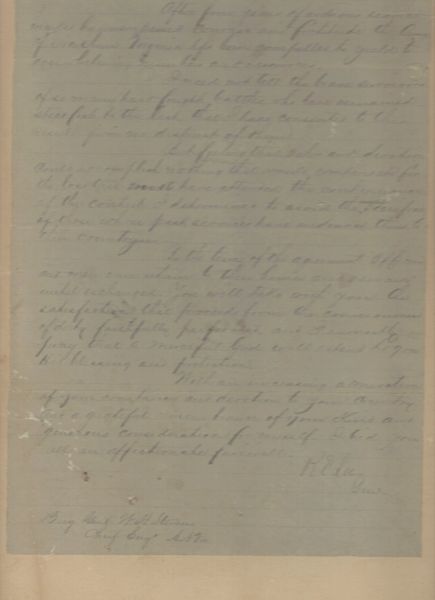 After four years of arduous service
marked by unsurpassed courage and fortitude the Army
of Northern Virginia has been compelled to yield to
overwhelming numbers and resources.
I need not tell the brave survivors
of so many hard fought battles who have remained
steadfast to the last that I have consented to this
result from no distrust of them.
But feeling that valor and devotion
could accomplish nothing that would compensate for
the loss that must have attended the continuance
of the contest I determined to avoid the sacrifice
of those whose past services have endeared them to
their countrymen.
By the terms of the agreement Officers
and men can return to their homes and remain
until exchanged. You will take with you the
satisfaction that proceeds from the consciousness
of duty faithfully performed and I earnestly
pray that a Merciful God will extend to you
His blessing and protection.
With an unceasing admiration
of your constancy and devotion to your Country
and a grateful remembrance of your kind and
generous consideration for myself I bid you
all an affectionate farewell.
R E Lee
Genl
Brig Genl W H Stevens
Chief Engr